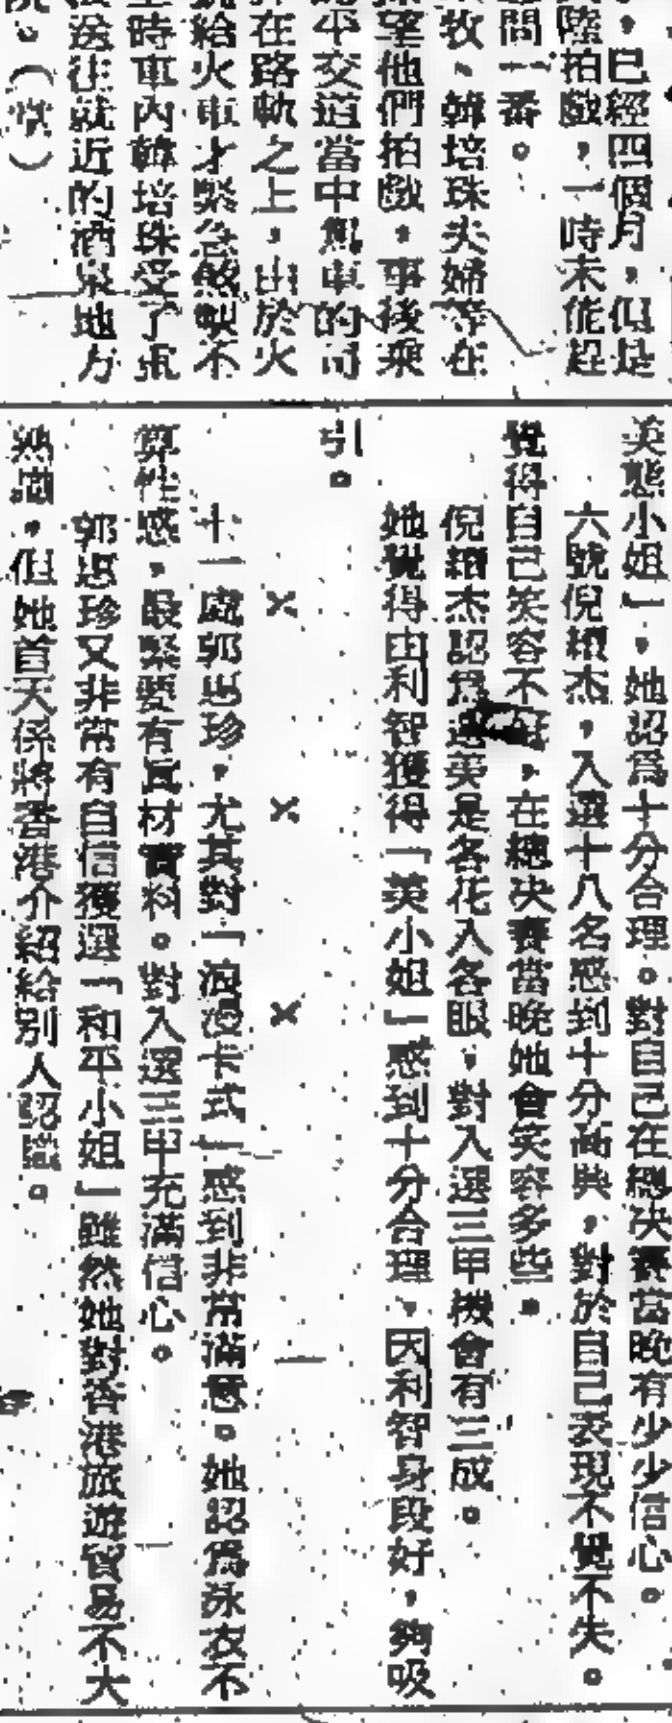 ，已經四個月，但是
陸拍戲，一時未能趕
問一番。
牧、韓培珠夫婦等在
望他們拍戲，事後乘
平交道當中，車的司
在路軌之上，由於火
給火車才緊急煞掣不
時車內韓培珠受了重
送往就近的酒泉地方
院。（ ）
美態小姐」，她認為十分合理。對自己在總決賽當晚有少少信心。
六號倪 杰，入選十八名感到十分高興，對於自己表現不覺不失。
覺得自己笑容不 ，在總決賽當晚她會笑容多些。
倪 杰認為選美是各花入各眼，對入選三甲機會有三成。
她覺得由利智獲得「美小姐」感到十分合理、因利智身段好，夠吸
引。
× × ×
十一處郭思珍，尤其對「浪漫卡式」感到非常滿意。她認為泳衣不
算性感，最緊要有真材實料。對入選三甲充滿信心。
郭思珍又非常有自信獲選「和平小姐」雖然她對香港旅遊貿易不大
熟識，但她首天係將香港介紹給別人認識。